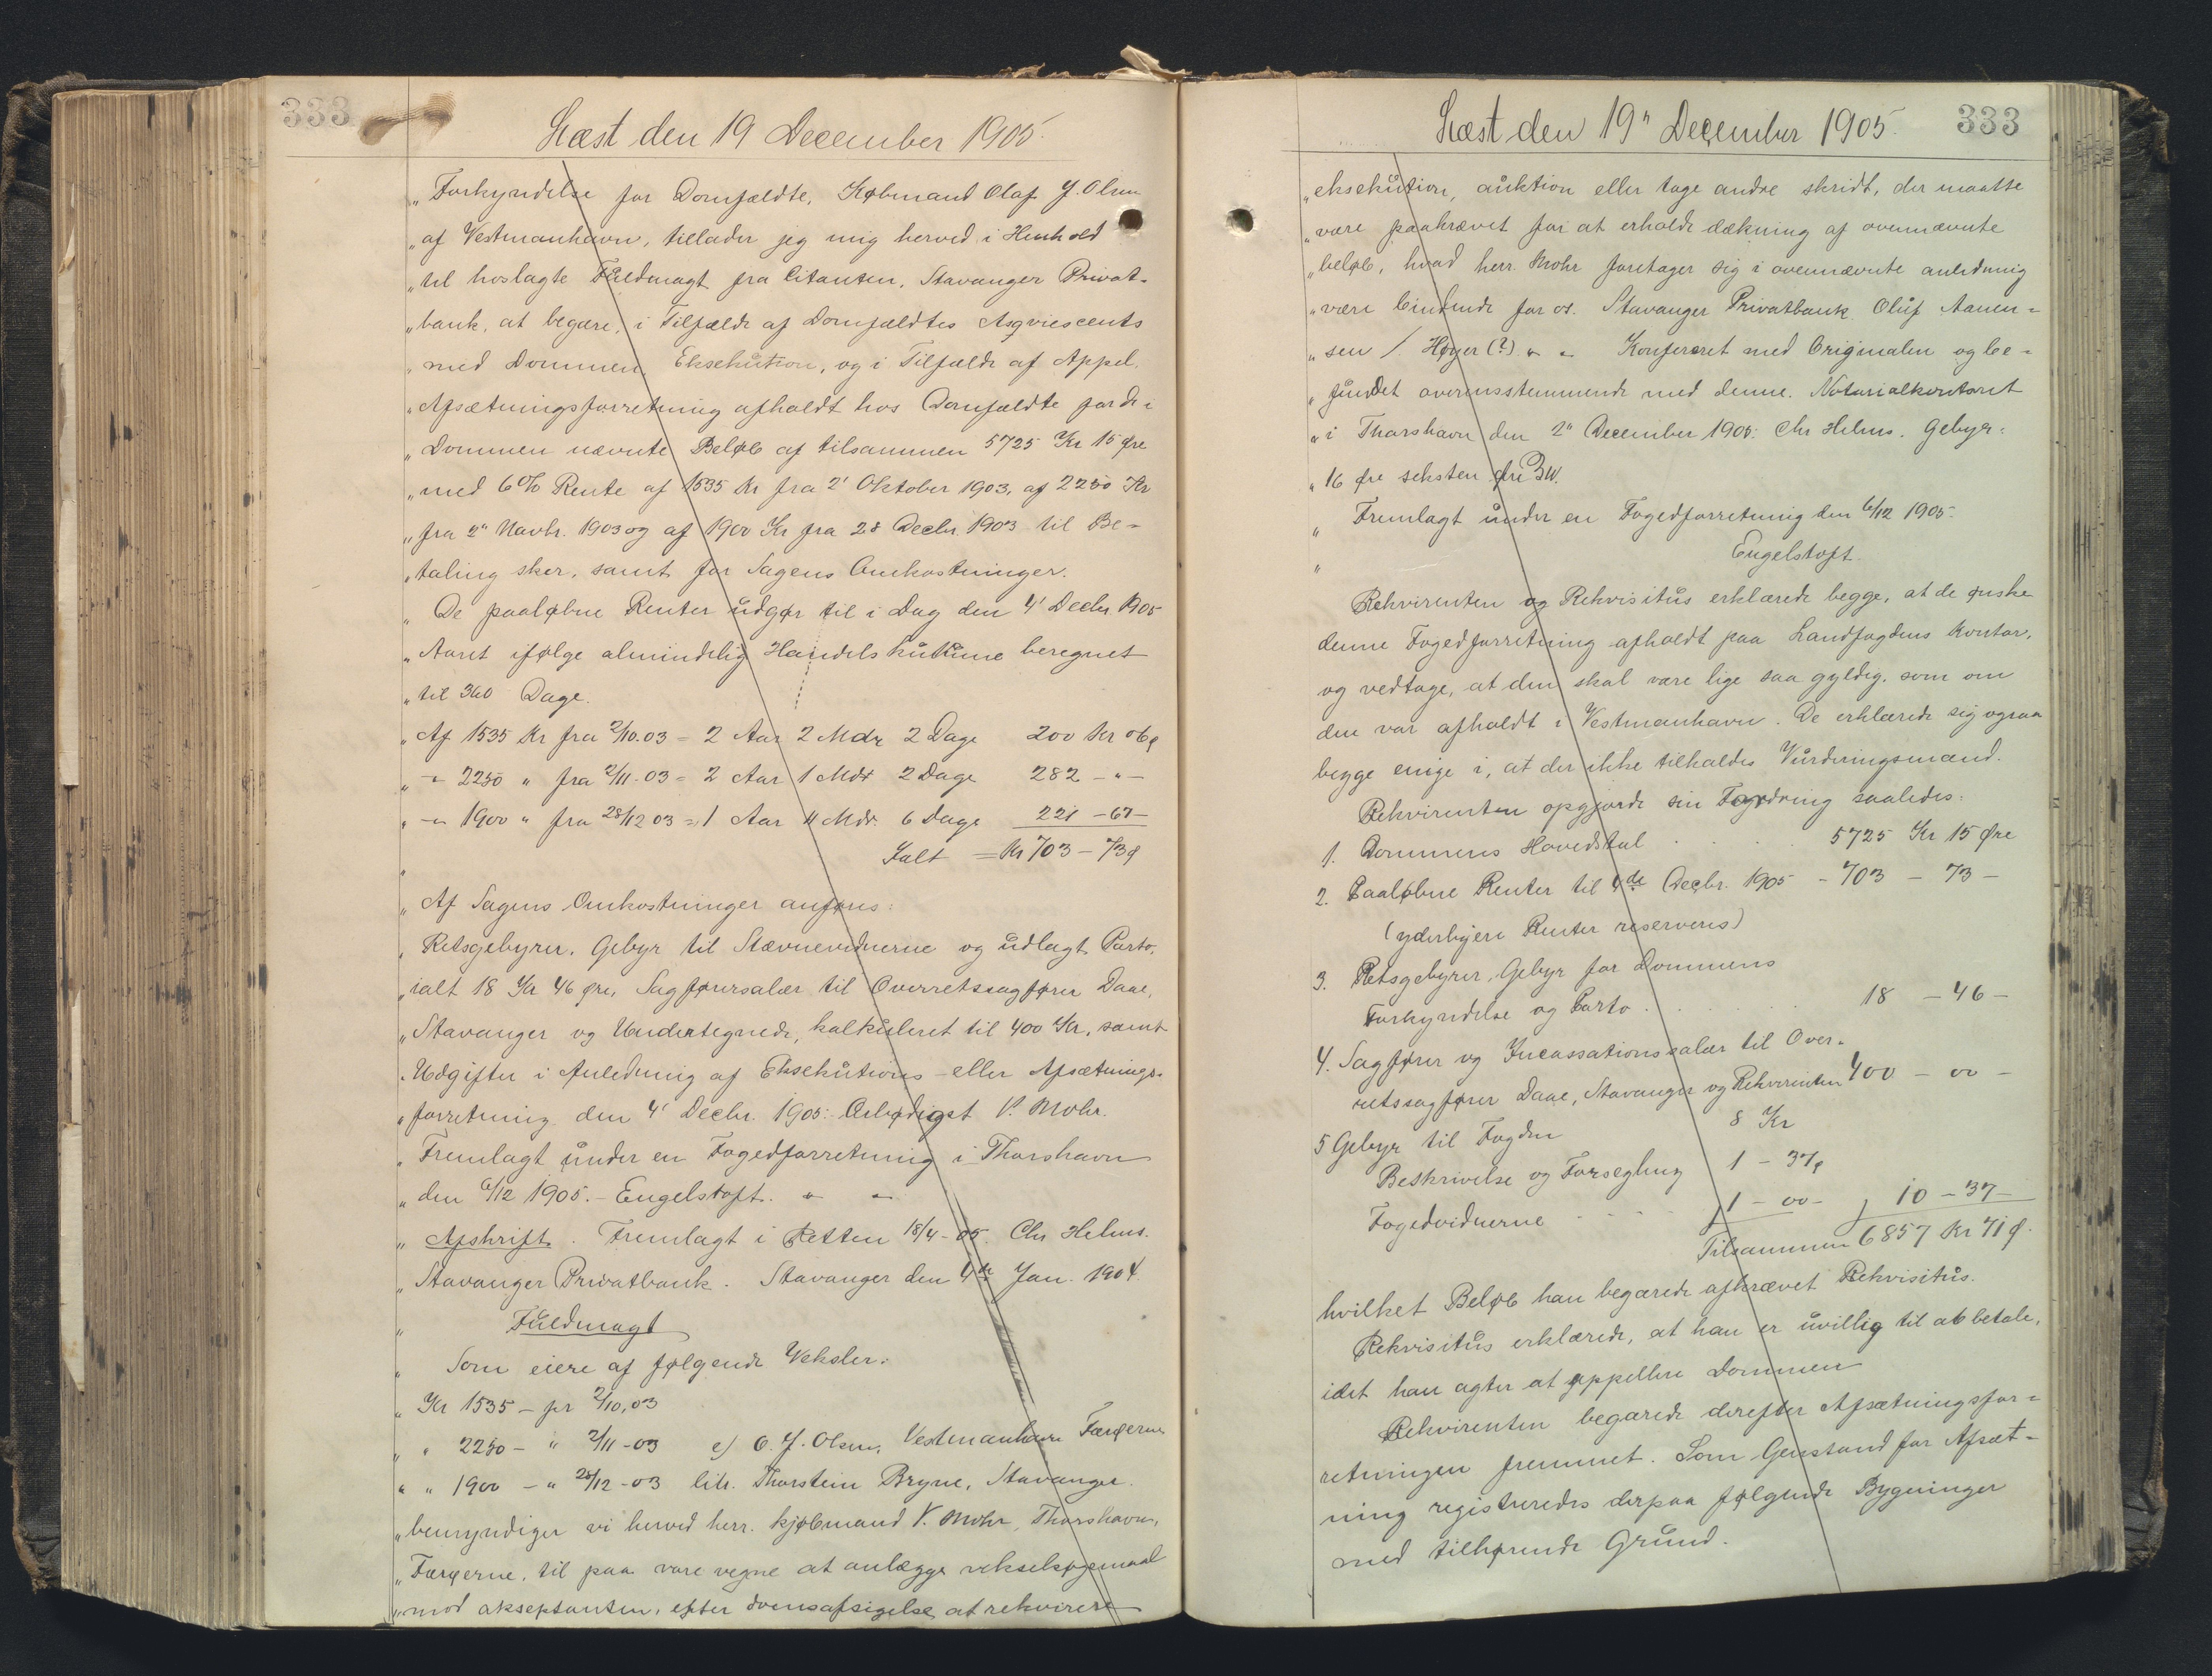 333
Læst den 19 December 1905.
„Forkyndelse for Domfældte, Købmand Olaf J. Olsen
„af Vestmanhavn, tillader jeg mig herved i Henhold
„til hoslagte Fuldmagt fra Citanten, Stavanger Privat-
„bank, at begære, i Tilfælde af Domfældtes Asqviescents
„med Dommen, Eksekution, og i Tilfælde af Appel,
„Afsætningsforretning afholdt hos Domfældte for de i
„Dommen nævnte Beløb af tilsammen 5725 Kr 15 Øre
„med 6% Rente af 1535 Kr fra 2' Oktober 1903, af 2250 Kr
„fra 2" Novbr. 1903 og af 1900 Kr fra 28 Decbr. 1903 til Be-
„taling sker, samt for Sagens Omkostninger.
„De paaløbne Renter udgør til i Dag den 4' Decbr 1905
„Aaret ifølge almindelig Handelskutume beregnet
„til 360 Dage.
„Af 1535 Kr fra 2/10.03 = 2 Aar 2 Mdr 2 Dage 200 Kr 06 ø
„ - 2250 „ fra 2/11-03 = 2 Aar 1 Mdr 2 Dage 282 - „ -
„ - 1900 „ fra 28/12 03 = 1 Aar 11 Mdr. 6 Dage 221 - 67 -
„ Ialt = Kr 703 - 73 ø
„Af Sagens Omkostninger anføres:
„Retsgebyrer, Gebyr til Stævnevidnerne og udlagt Porto,
„ialt 18 Kr 46 Øre, Sagførersalær til Overretssagfører Daae,
„Stavanger og Undertegnede, kalkuleret til 400 Kr, samt
„Udgifter i Anledning af Eksekutions- eller Afsætnings-
„forretning. den 4' Decbr. 1905: Ærbødigst V. Mohr.
„Fremlagt under en Fogedforretning i Thorshavn
„den 6/12 1905. - Engelstoft. „ „
„Afskrift. Fremlagt i Retten 18/4-05. Chr Helms.
„Stavanger Privatbank. Stavanger den 4de Jan. 1904.
„ Fuldmagt
„ Som eiere af følgende Veksler:
„ Kr 1535 - pr 2/10,03
„ „ 2250 - „ 2/11-03 e/ O. J. Olsen, Vestmanhavn Færøerne
„ „ 1900 - „ 28/12-03 litr. Thorstein Bryne, Stavanger.
„bemyndiger vi herved herr. kjøbmand V. Mohr, Thorshavn,
„Færøerne, til paa vore vegne at anlægge vekselsøgsmaal
„mod akseptanten, efter domsafsigelse at rekvirere
333
Læst den 19" December 1905.
„eksekution, auktion eller tage andre skridt, der maatte
„være paakrævet for at erholde dækning af ovennævnte
„beløb, hvad herr. Mohr foretager sig i ovennævnte anledning
„være bindende for os. Stavanger Privatbank Oluf Aanen-
„sen /. Høyer (?) „ „ Konfereret med Originalen og be-
„fundet overensstemmende med denne. Notarialkontoret
„i Thorshavn den 2" December 1905. Chr Helms. Gebyr:
„16 Øre seksten Øre
„ Fremlagt under en Fogedforretning den 6/12 1905.
„ Engelstoft.
Rekvirenten og Rekvisitus erklærede begge, at de ønske
denne Fogedforretning afholdt paa Landfogdens Kontor,
og vedtage, at den skal være lige saa gyldig, som om
den var afholdt i Vestmanhavn. De erklærede sig ogsaa
begge enige i, at der ikke tilkaldes Vurderingsmænd.
Rekvirenten opgjorde sin Fordring saaledes:
1. Dommens Hovedstol . . . . 5725 Kr 15 Øre
2. Paaløbne Renter til 4de Decbr. 1905 - 703 - 73 -
(yderligere Renter reserveres)
3. Retsgebyrer, Gebyr for Dommens
Forkyndelse og Porto . . . . 18 - 46 -
4. Sagfører og Incassationssalær til Over-
retssagfører Daae, Stavanger og Rekvirenten 400 - 00 -
5 Gebyr til Fogden 8 Kr
Beskrivelse og Forsegling 1 - 37 ø
Fogedvidnerne . . . . 1 - 00 - 10 - 37 -
Tilsammen 6857 Kr 71 Ø.
hvilket Beløb han begærede afkrævet Rekvisitus.
Rekvisitus erklærede, at han er uvillig til at betale,
idet han agter at appellere Dommen
Rekvirenten begærede derefter Afsætningsfor-
retningen fremmet. Som Genstand for Afsæt-
ning registreredes derpaa følgende Bygninger
med tilhørende Grund.